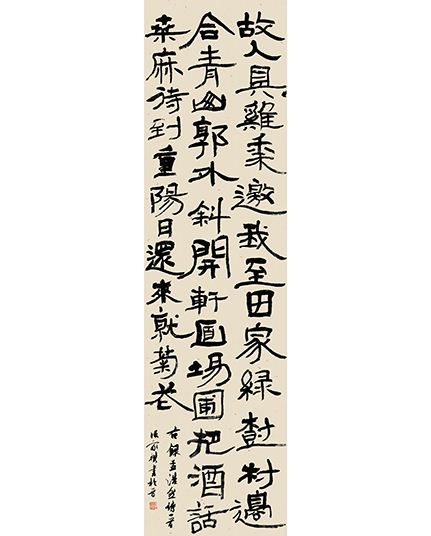 故人具雞黍邀我至田家緑樹村邊
合青山郭外斜開軒面場圃把酒話
桒麻待到重陽日還來就菊花
右録孟浩然詩一首